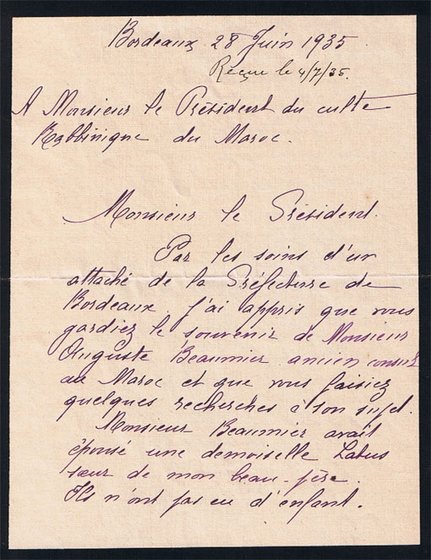 Bordeaux 28 Juin 1935
Reçue le 4/7/35.
A Monsieur le Président du culte
Rabbinique du Maroc.
Monsieur le Président.
Par les soins d'un
attaché de la Préfecture de
Bordeaux j'ai appris que vous
gardiez le souvenir de Monsieur
Auguste Beaumier ancien consul
au Maroc et que vous faisiez
quelques recherches à son sujet.
Monsieur Beaumier avait
épousé une demoiselle Labus
sœur de mon beau-père.
Ils n'ont pas eu d'enfant.